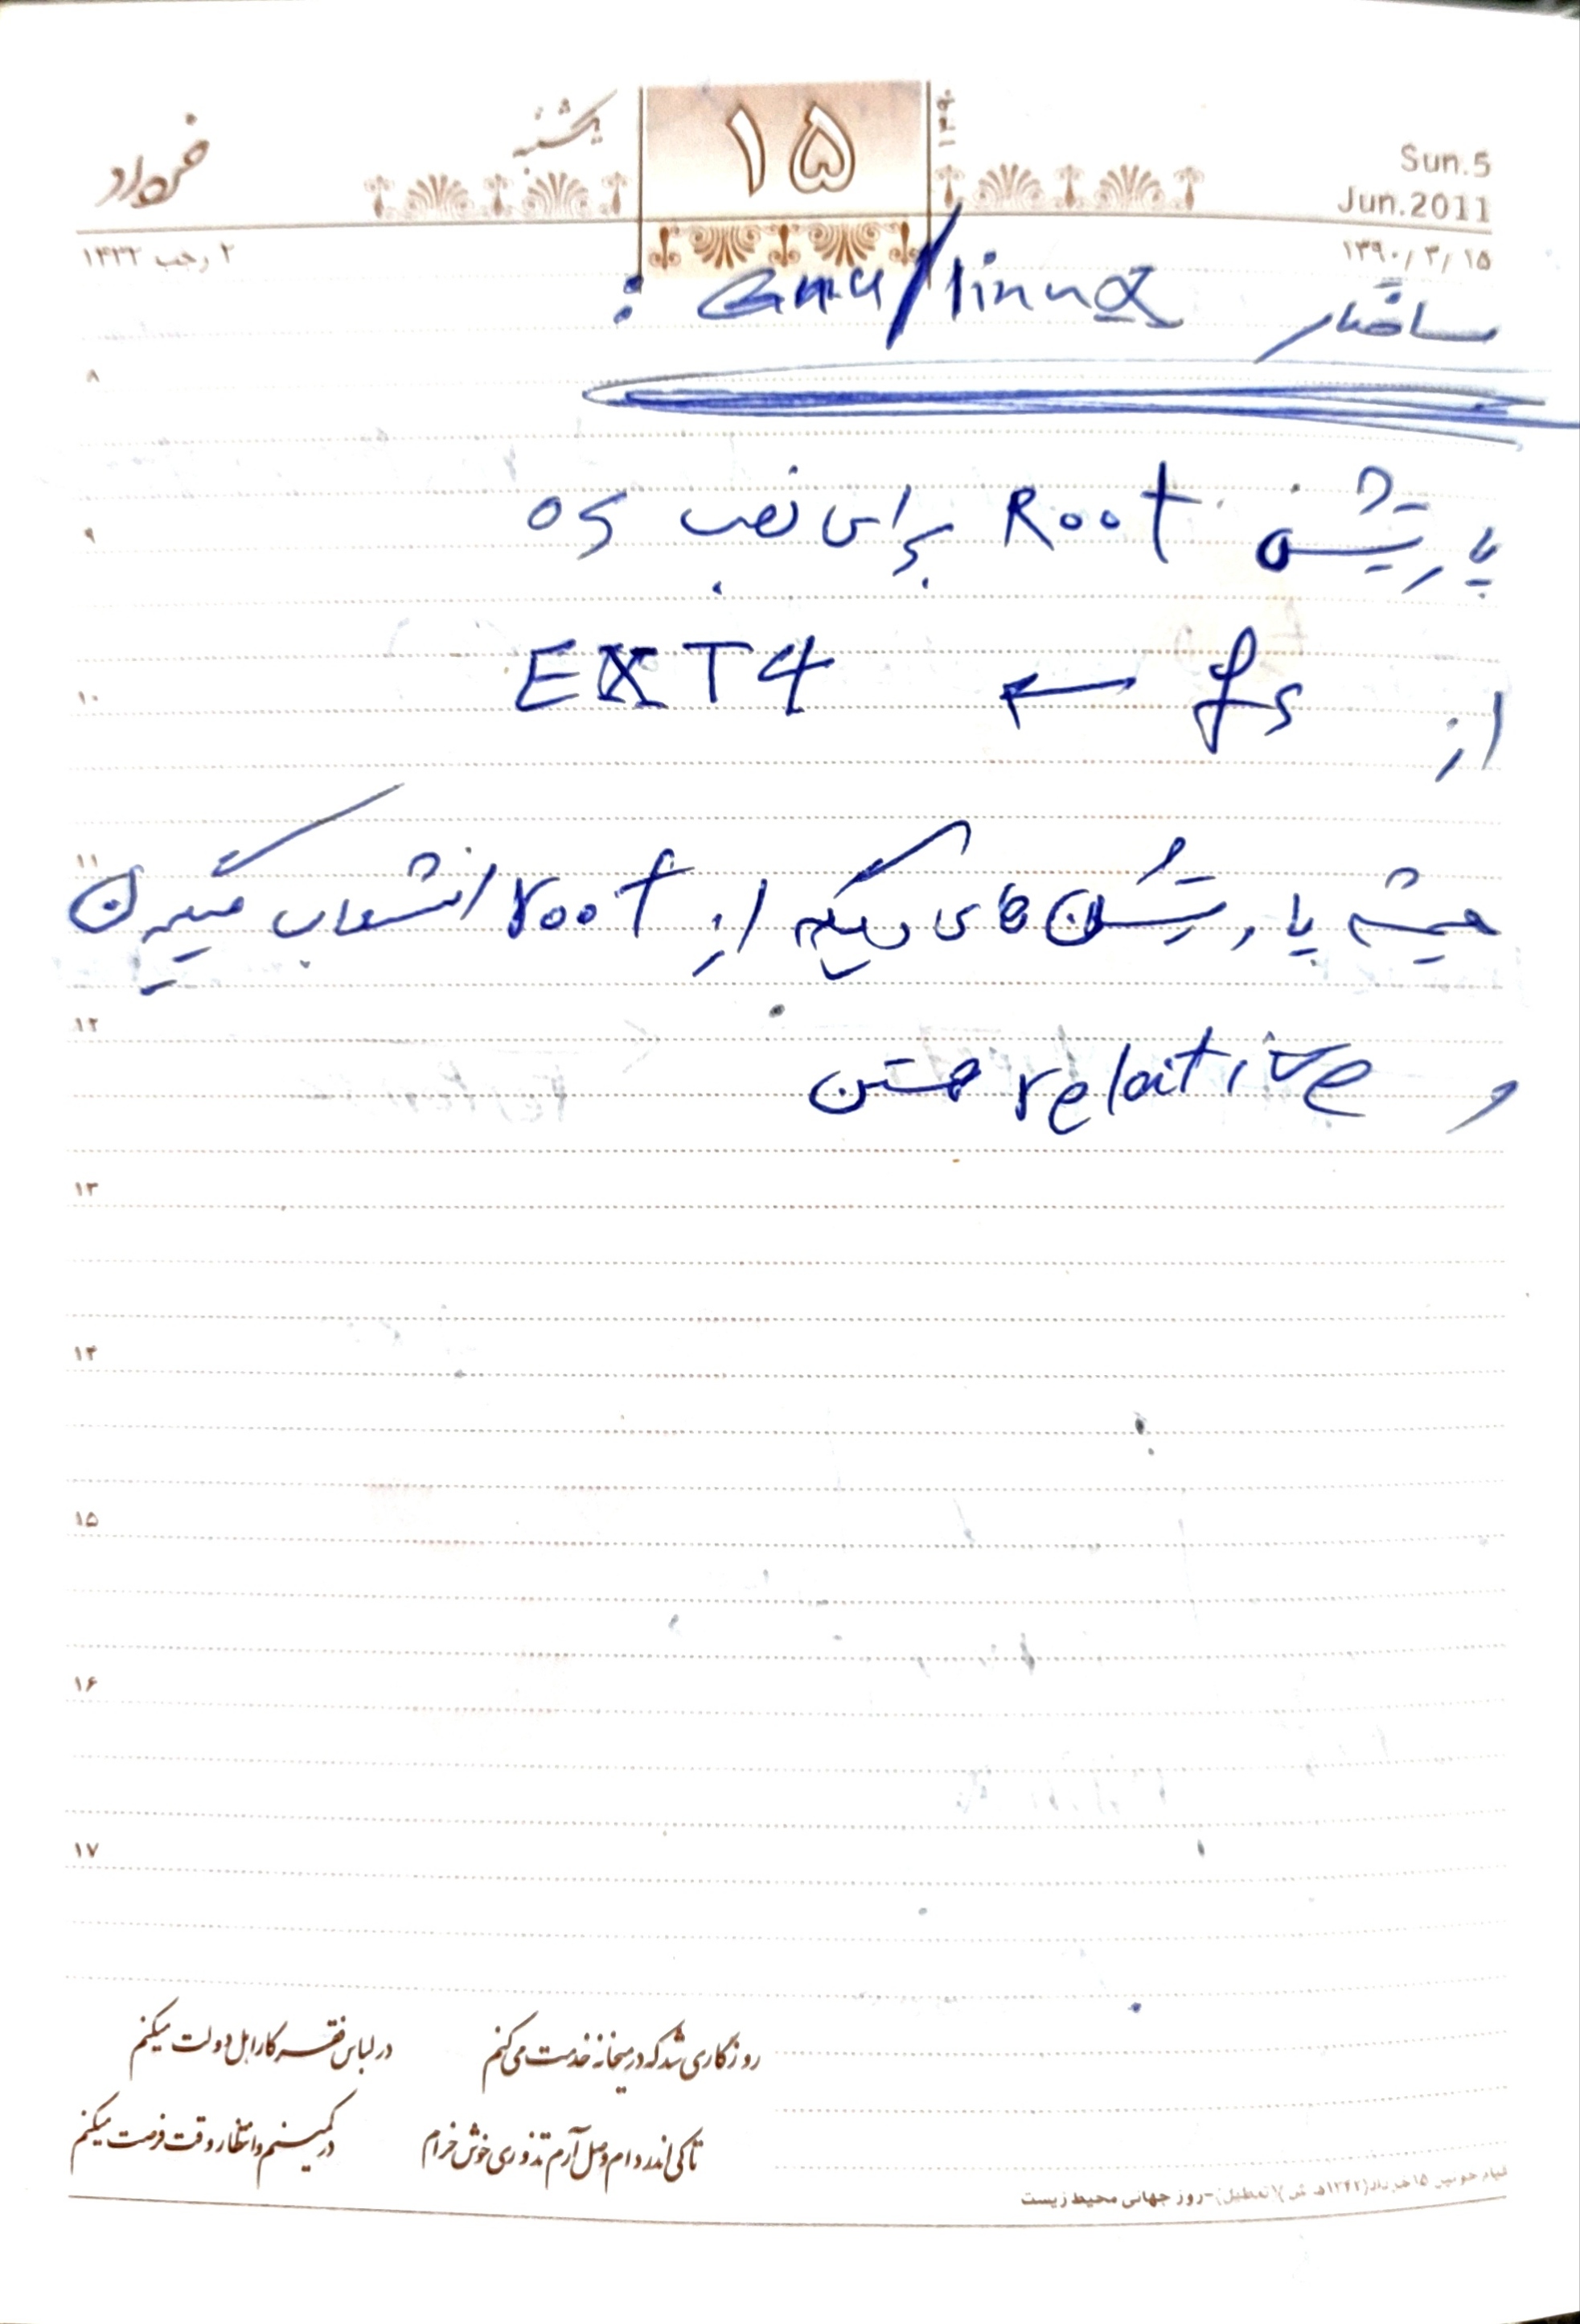 فرداد
یکشنبه
۱۵
۱۳۹۰
Sun.5
Jun.2011
۲ رجب ۱۴۳۲
۱۳۹۰/۳/۱۵
ساختار Gnu/linux :
۸
پارتیشن Root برای نصب os
۹
از fs ← EXT4
۱۰
همیشه پارتیشن های دیگه از root انشعاب میگیرن
۱۱
۱۲
و relative هستن
۱۳
۱۴
۱۵
۱۶
۱۷
روزگاری شد که در میخانه خدمت می کنم در لباس فقر کار اهل دولت میکنم
تا کی اندر دام وصل آرم تذروی خوش خرام در کمینم و انتظار وقت فرصت میکنم
قیام خونین ۱۵ خرداد (۱۳۴۲ هـ ش) (تعطیل) - روز جهانی محیط زیست